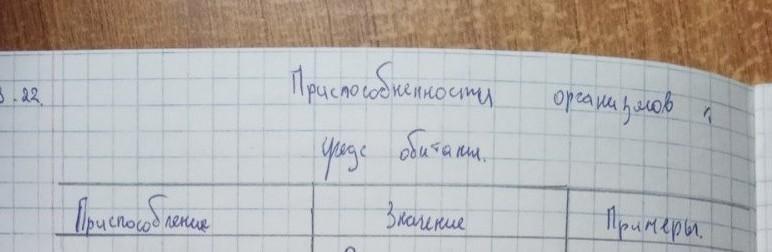 .22.
Приспособленность организмов к
среде обитани.
Приспособление Значение Примеры.